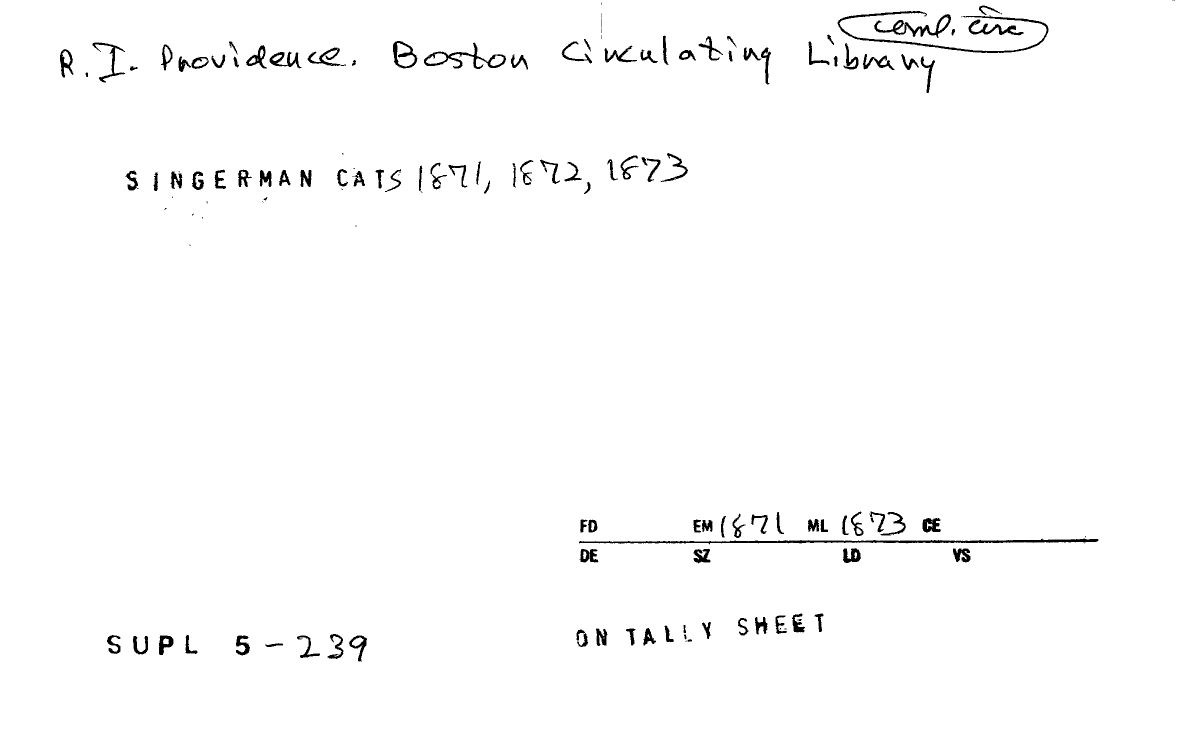 coml. circ
R.I. Providence. Boston Circulating Library
SINGERMAN CATS 1871, 1872, 1873
FD EM 1871 ML 1873 CE
DE SZ LD VS
SUPL 5-239
ON TALLY SHEET